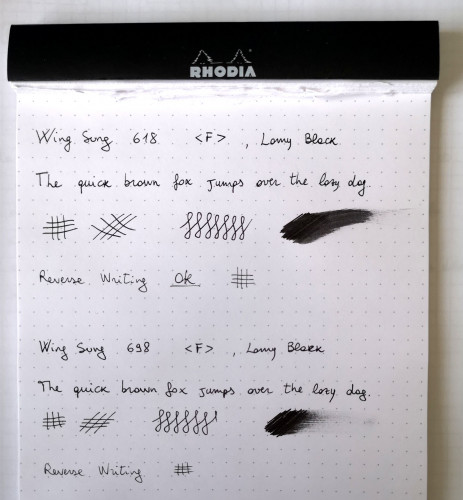 RHODIA
Wing Sung 618 <F> , Lamy Black
The quick brown fox jumps over the lazy dog.
Reverse Writing Ok
Wing Sung 698 <F> , Lamy Black
The quick brown fox jumps over the lazy dog.
Reverse Writing